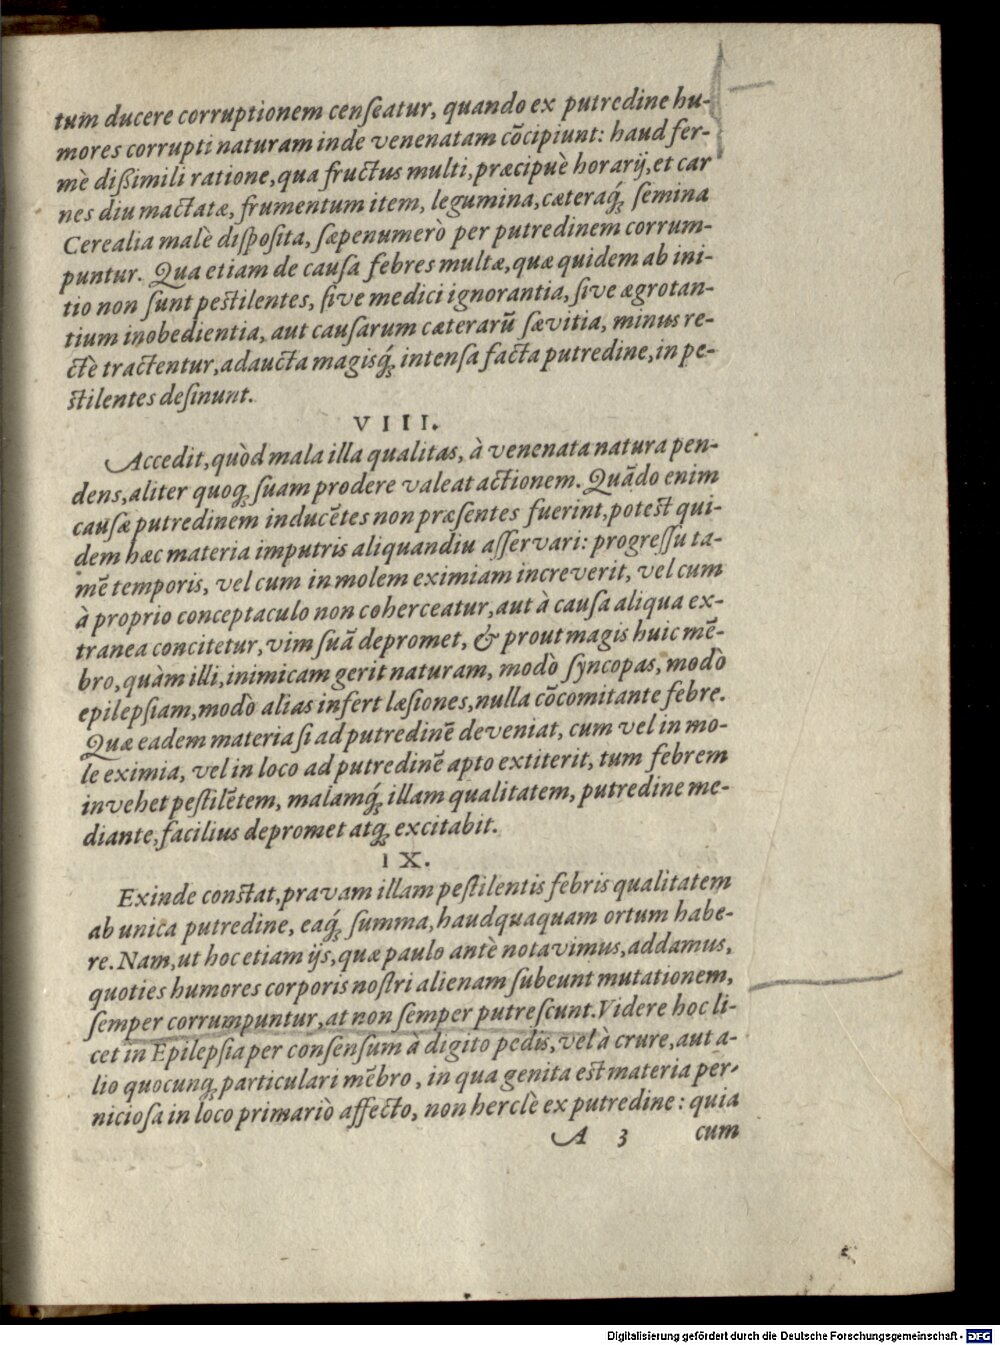 tum ducere corruptionem censeatur, quando ex putredine hu-
mores corrupti naturam inde venenatam cõcipiunt: haud fer-
mè dißimili ratione, qua fructus multi, præcipuè horarij, et car
nes diu mactatæ, frumentum item, legumina, cæteraq́; semina
Cerealia malè disposita, sæpenumerò per putredinem corrum-
puntur. Qua etiam de causa febres multæ, quæ quidem ab ini-
tio non sunt pestilentes, sive medici ignorantia, sive ægrotan-
tium inobedientia, aut causarum cæterarũ sævitia, minus re-
ctè tractentur, adaucta magisq́; intensa facta putredine, in pe-
stilentes desinunt.
VIII.
Accedit, quòd mala illa qualitas, à venenata natura pen-
dens, aliter quoq; suam prodere valeat actionem. Quãdo enim
causæ putredinem inducẽtes non præsentes fuerint, potest qui-
dem hæc materia imputris aliquandiu asservari: progressu ta-
mẽ temporis, vel cum in molem eximiam increverit, vel cum
à proprio conceptaculo non coherceatur, aut à causa aliqua ex-
tranea concitetur, vim suã depromet, & prout magis huic mẽ-
bro, quàm illi, inimicam gerit naturam, modò syncopas, modò
epilepsiam, modò alias infert læsiones, nulla cõcomitante febre.
Quæ eadem materia si ad putredinẽ deveniat, cum vel in mo-
le eximia, vel in loco ad putredinẽ apto extiterit, tum febrem
invehet pestilẽtem, malamq́; illam qualitatem, putredine me-
diante, facilius depromet atq; excitabit.
IX.
Exinde constat, pravam illam pestilentis febris qualitatem
ab unica putredine, eaq́; summa, haudquaquam ortum habe-
re. Nam, ut hoc etiam ijs, quæ paulo antè notavimus, addamus,
quoties humores corporis nostri alienam subeunt mutationem,
semper corrumpuntur, at non semper putrescunt. Videre hoc li-
cet in Epilepsia per consensum à digito pedis, vel à crure, aut a-
lio quocunq; particulari mẽbro, in qua genita est materia per-
niciosa in loco primariò affecto, non herclè ex putredine: quia
A 3 cum
Digitalisierung gefördert durch die Deutsche Forschungsgemeinschaft - DFG